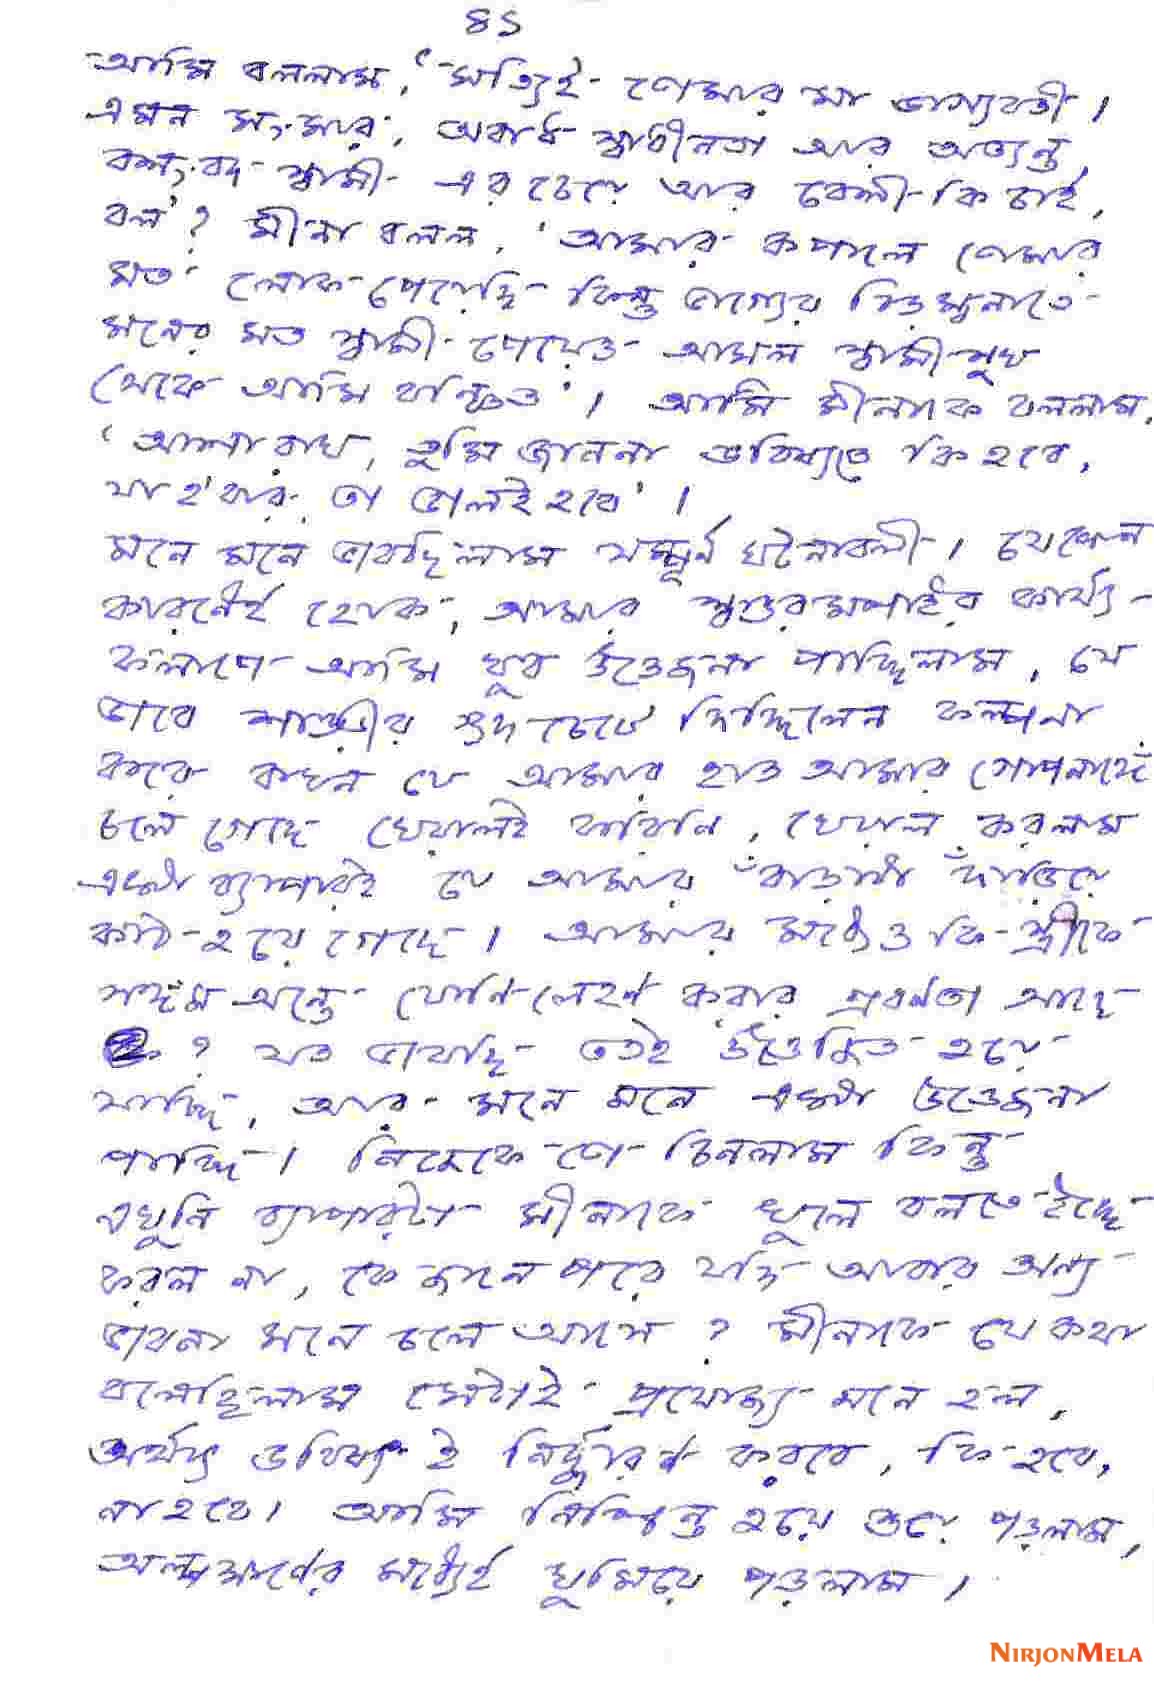 ৪১
আমি বললাম, 'সত্যিই তোমার মা ভাগ্যবতী।
এমন সংসার, অবাধ স্বাধীনতা আর অত্যন্ত
বশংবদ স্বামী এর চেয়ে আর বেশী কি চাই,
বল'? মীনা বলল, 'আমার কপালে তোমার
মত লোক পেয়েছি কিন্তু ভাগ্যের বিড়ম্বনাতে
মনের মত স্বামী পেয়েও আসল স্বামী সুখ
থেকে আমি বঞ্চিত'। আমি মীনাকে বললাম,
'আশা রাখ, তুমি জাননা ভবিষ্যতে কি হবে,
যা হ'বার, তা ভালই হবে'।
মনে মনে ভাবছিলাম সম্পূর্ন ঘটনাবলী। যে কোন
কারনেই হোক, আমার শ্বশুরমশাইর কার্য্য-
কলাপে আমি খুব উত্তেজনা পাচ্ছিলাম, যে
ভাবে শাশুড়ীর গুদ চেটে দিচ্ছিলেন কল্পনা
করে কখন যে আমার হাত আমার গোপনাঙ্গে
চলে গেছে খেয়ালই করিনি, খেয়াল করলাম
একটা ব্যাপারই যে আমার বাড়াটা দাঁড়িয়ে
কাঠ হয়ে গেছে। আমার মধ্যেও কি স্ত্রীকে
সঙ্গম অন্তে যোনি লেহণ করার প্রবণতা আছে
? যত ভাবছি ততই উত্তেজিত হয়ে
যাচ্ছি, আর মনে মনে একটা উত্তেজনা
পাচ্ছি। নিজেকে তো চিনলাম কিন্তু
এখুনি ব্যাপারটা মীনাকে খুলে বলতে ইচ্ছে
করল না, কে জানে পরে যদি আবার অন্য
ভাবনা মনে চলে আসে? মীনাকে যে কথা
বলেছিলাম সেটাই প্রযোজ্য মনে হল,
অর্থাৎ ভবিষ্যৎ ই নির্দ্ধারণ করবে, কি হবে,
না হবে। আমি নিশ্চিন্ত হয়ে শুয়ে পড়লাম,
অল্পক্ষণের মধ্যেই ঘুমিয়ে পড়লাম।
NIRJONMELA